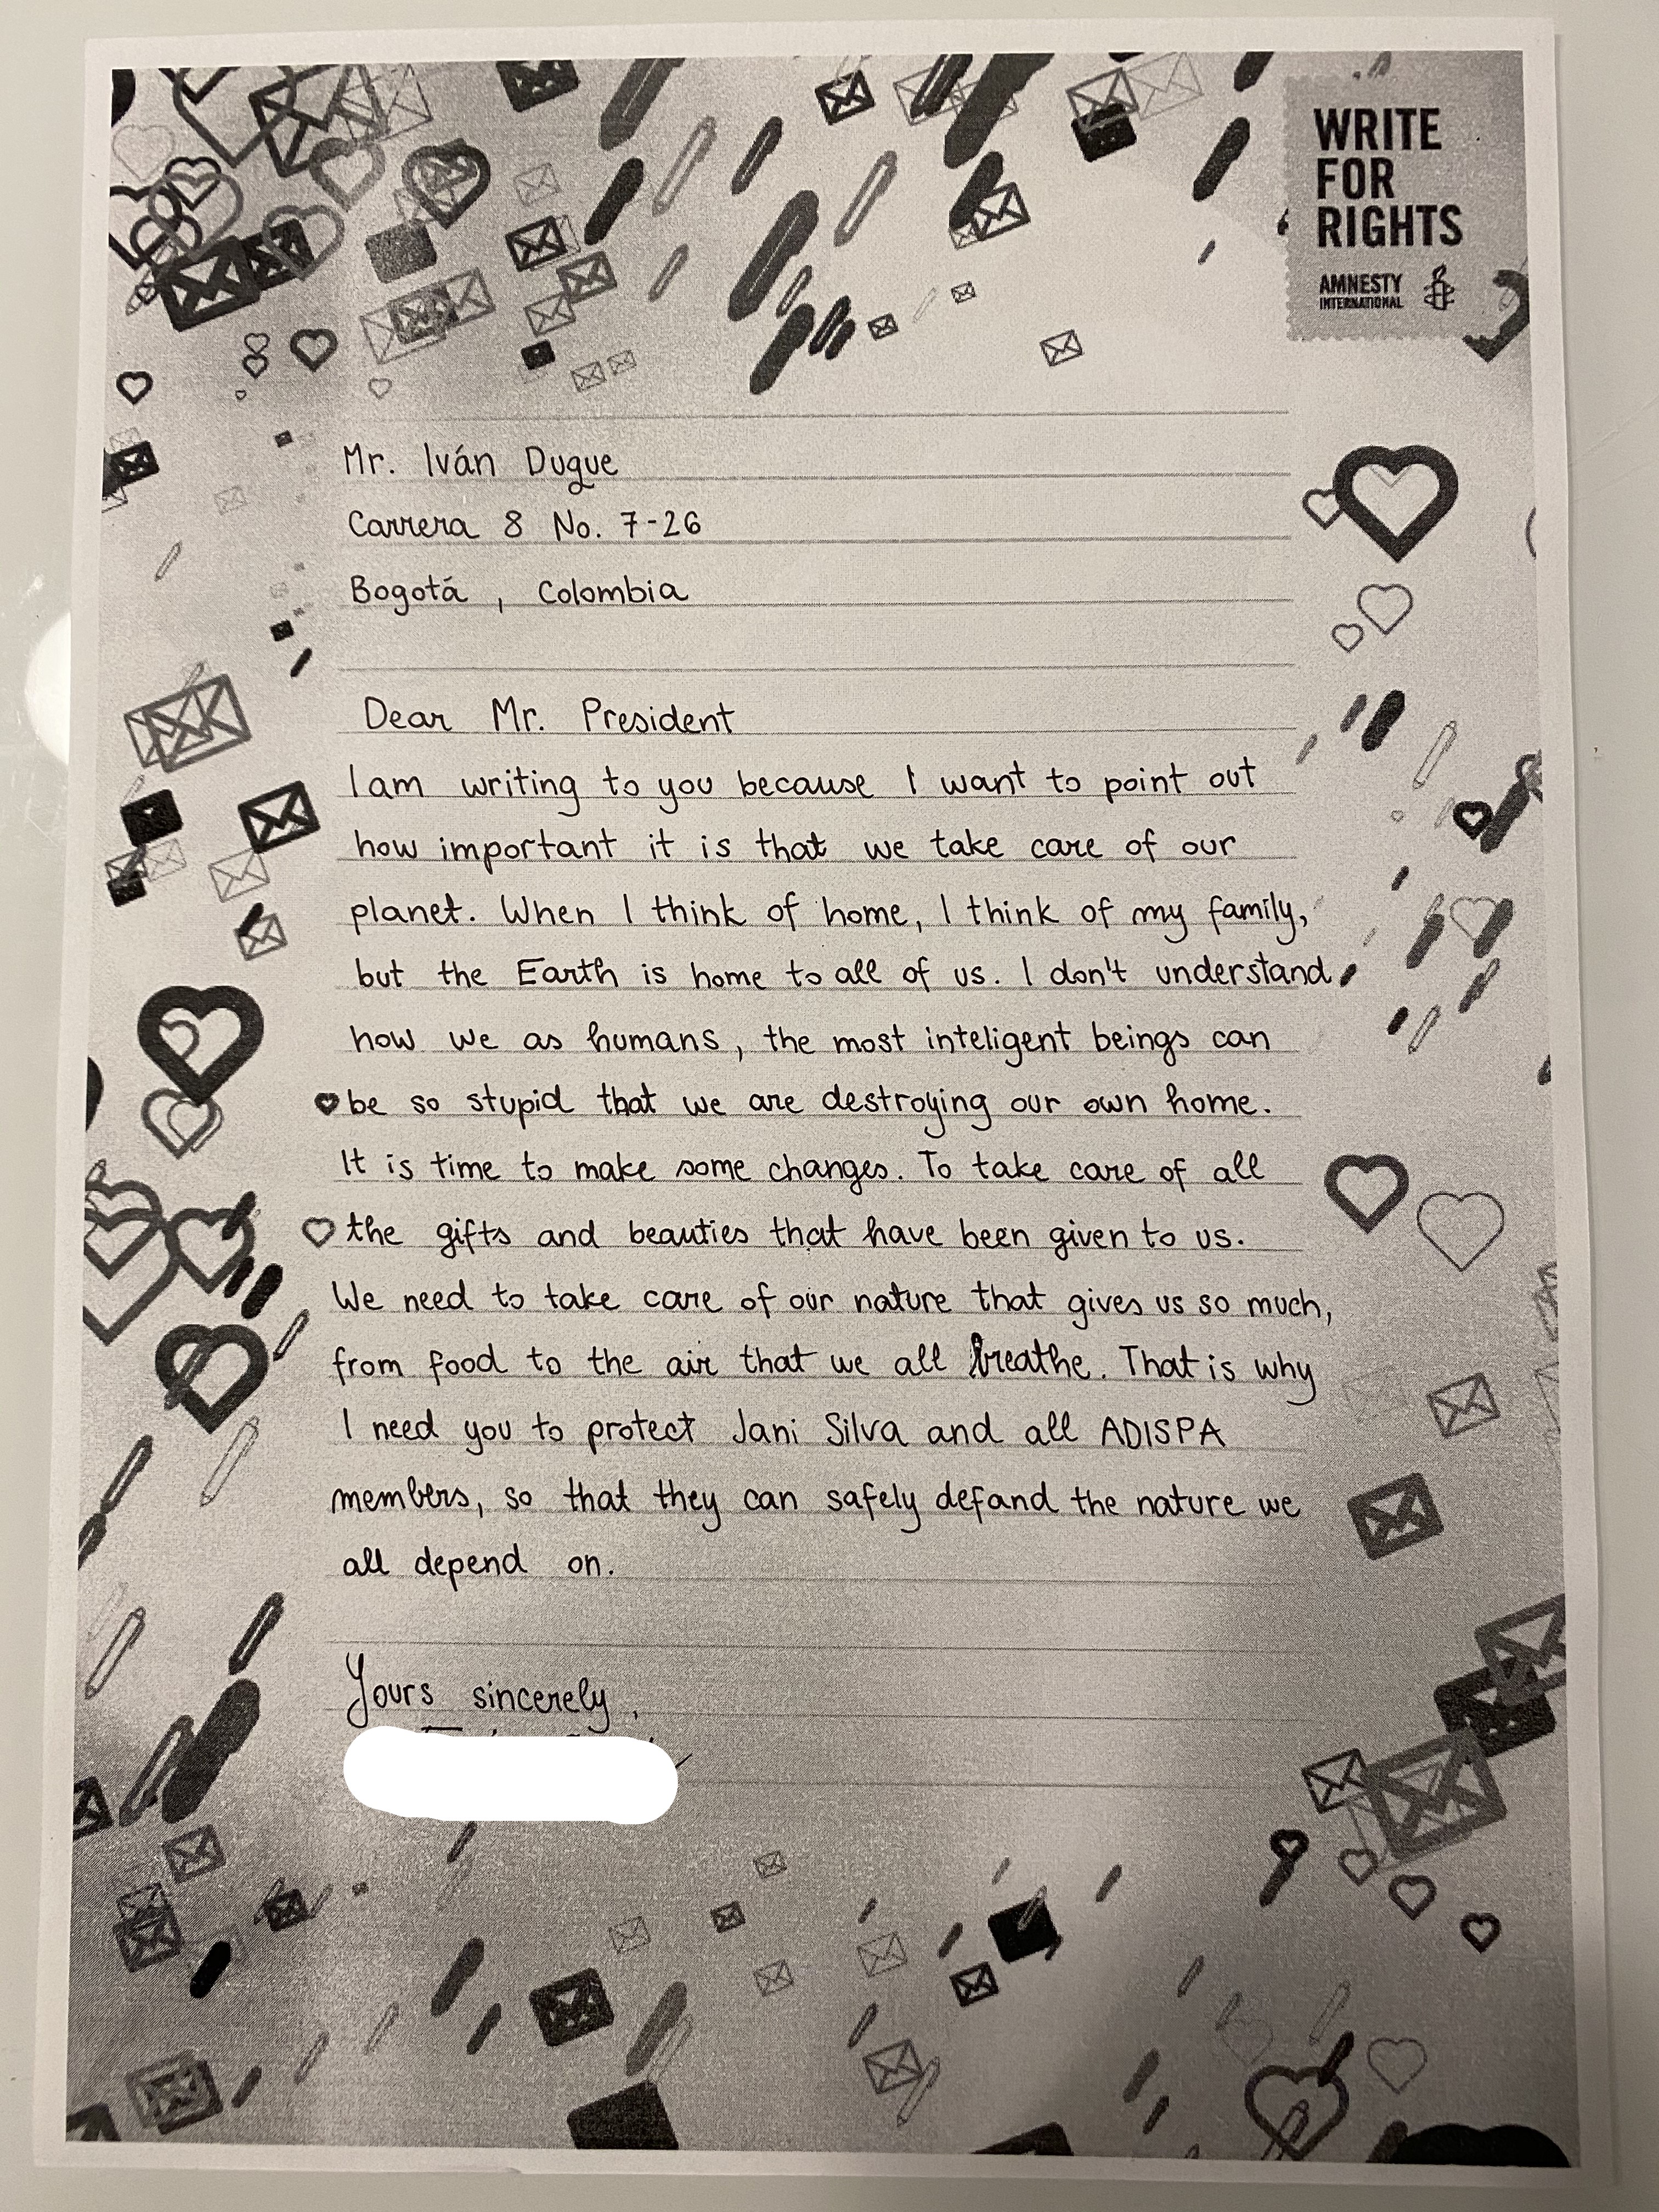 WRITE
FOR
RIGHTS
AMNESTY
INTERNATIONAL
Mr. Iván Duque
Carrera 8 No. 7-26
Bogotá , Colombia
Dear Mr. President
I am writing to you because I want to point out
how important it is that we take care of our
planet. When I think of home, I think of my family,
but the Earth is home to all of us. I don't understand
how we as humans, the most inteligent beings can
be so stupid that we are destroying our own home.
It is time to make some changes. To take care of all
the gifts and beauties that have been given to us.
We need to take care of our nature that gives us so much,
from food to the air that we all breathe. That is why
I need you to protect Jani Silva and all ADISPA
members, so that they can safely defand the nature we
all depend on.
Yours sincerely,